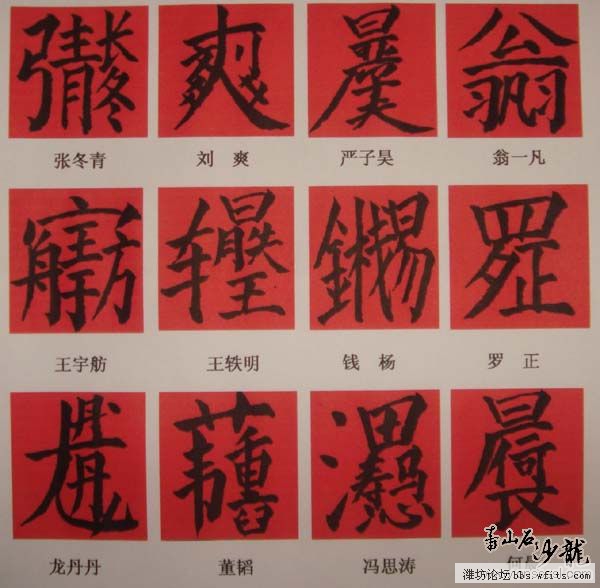 张冬青 刘 爽 严子昊 翁一凡
王宇舫 王轶明 钱 杨 罗 正
龙丹丹 董韬 冯思涛 何
寿山石沙龙
潍坊论坛bbs.wfits.com